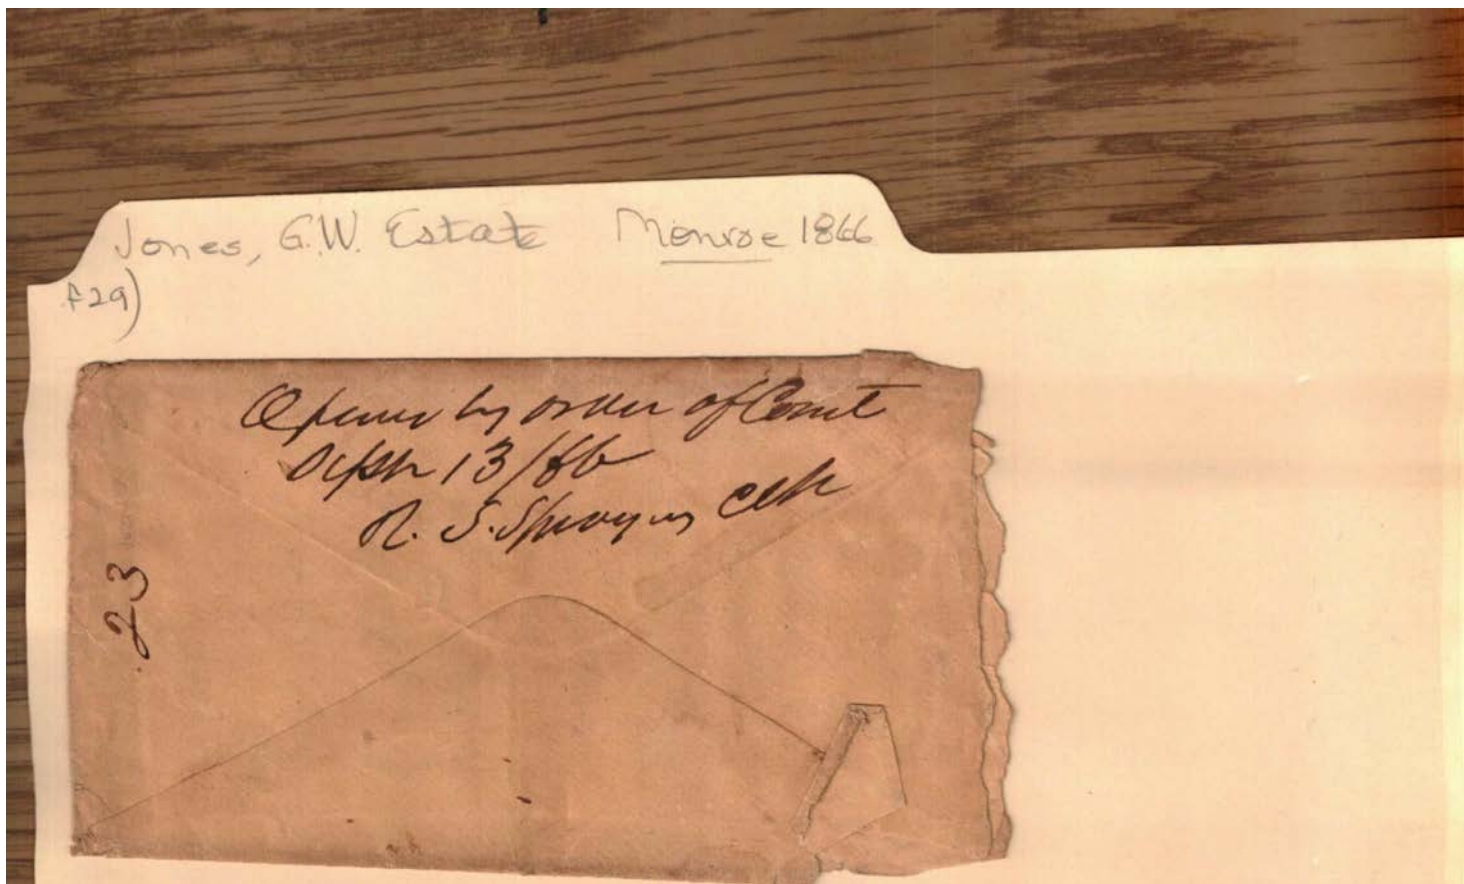 Jones, G.W. Estate Monroe 1866
F29)
Opened by order of Court
Sept 13/66
R. S. Clk
23